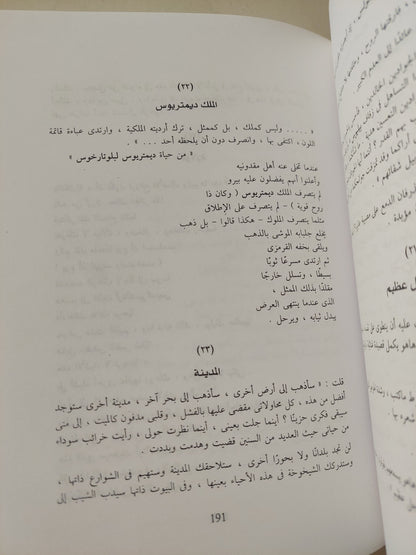 (٢٢)
الملك ديمتريوس
« ..... وليس كملك ، بل كممثل ، ترك أرديته الملكية ، وارتدى عباءة قاتمة
اللون ، اكتفى بها ، وانصرف دون أن يلحظه أحد ... » .
« من حياة ديمتريوس لبلوتارخوس »
عندما تخلى عنه أهل مقدونيه
وأعلنوا أنهم يفضلون عليه بيرو
لم يتصرف الملك ديمتريوس ( وكان ذا
روح قوية ) – لم يتصرف على الإطلاق
مثلما يتصرف الملوك – هكذا قالوا – بل ذهب
يخلع جلبابه الموشى بالذهب
ويلقى بخفه القرمزى
ثم ارتدى مسرعًا ثوبًا
بسيطًا ، وتسلل خارجًا
مقلدًا بذلك الممثل ،
الذى عندما ينتهى العرض
يبدل ثيابه ، ويرحل .
(٢٣)
المدينة
قلت : « سأذهب إلى أرض أخرى ، سأذهب إلى بحر آخر ، مدينة أخرى ستوجد
أفضل من هذه ، كل محاولاتى مقضى عليها بالفشل ، وقلبى مدفون كالميت ، إلى متى
سيبقى فكرى حزينًا ؟ أينما جلت بعينى ، أينما نظرت حولى ، رأيت خرائب سوداء
من حياتى حيث العديد من السنين قضيت وهدمت وبددت .
لن تجد بلدانًا ولا بحورًا أخرى ، ستلاحقك المدينة وستهيم فى الشوارع ذاتها ،
وستدركك الشيخوخة فى هذه الأحياء بعينها ، وفى البيوت ذاتها سيدب الشيب إلى
191